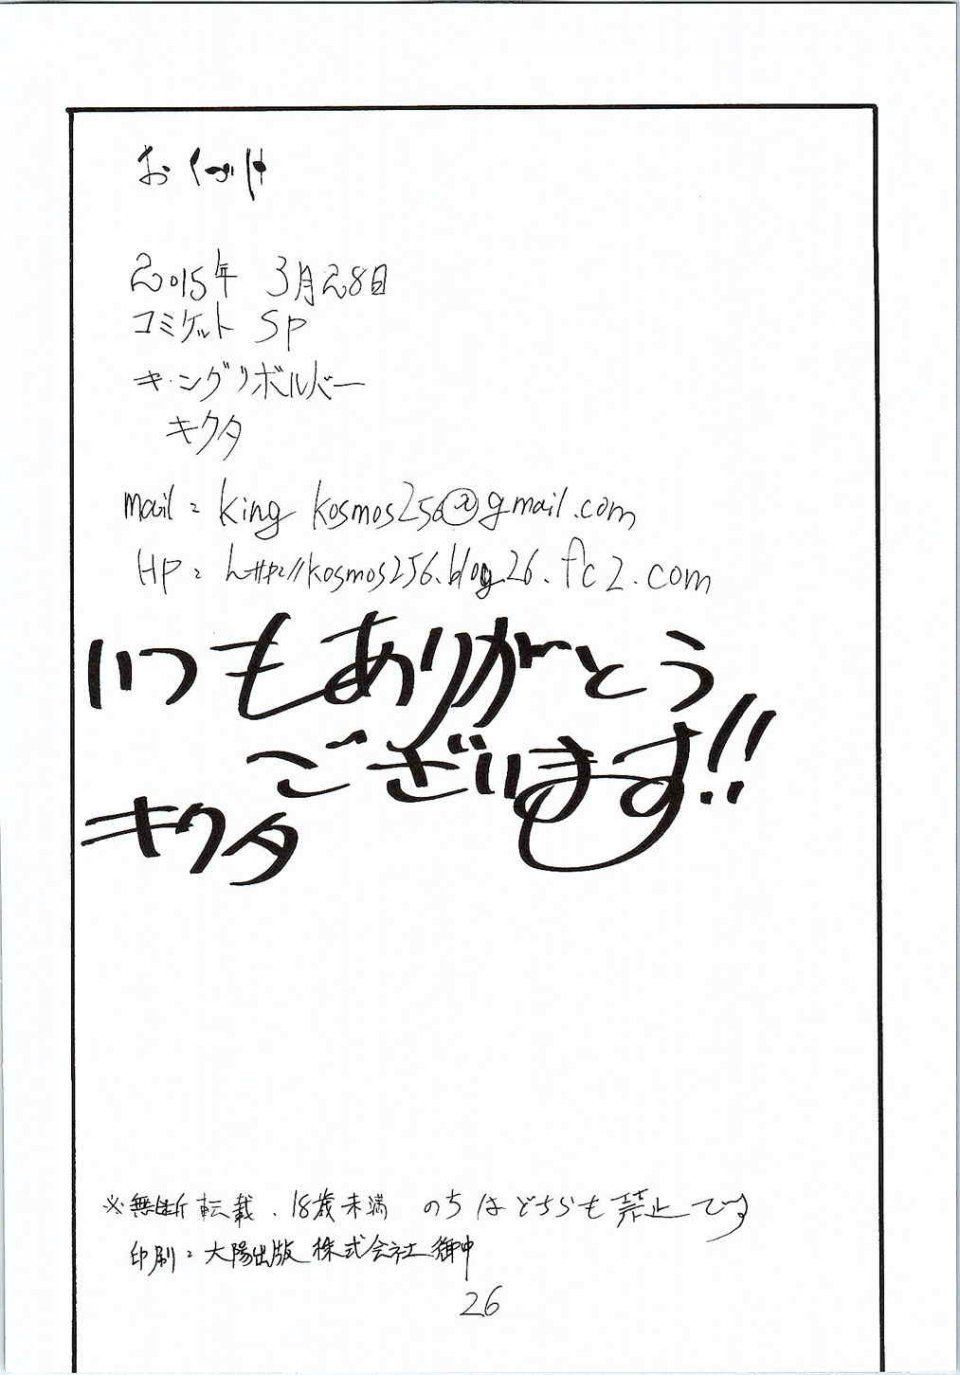 おくづけ
2015年 3月28日
コミケット SP
キングリボルバー
キクタ
mail: king kosmos256@gmail.com
HP: http://kosmos256.blog26.fc2.com
いつもありがとう
ございます!!
キクタ
※無断転載、18歳未満 のちはどちらも禁止です
印刷: 大陽出版 株式会社 御中
26